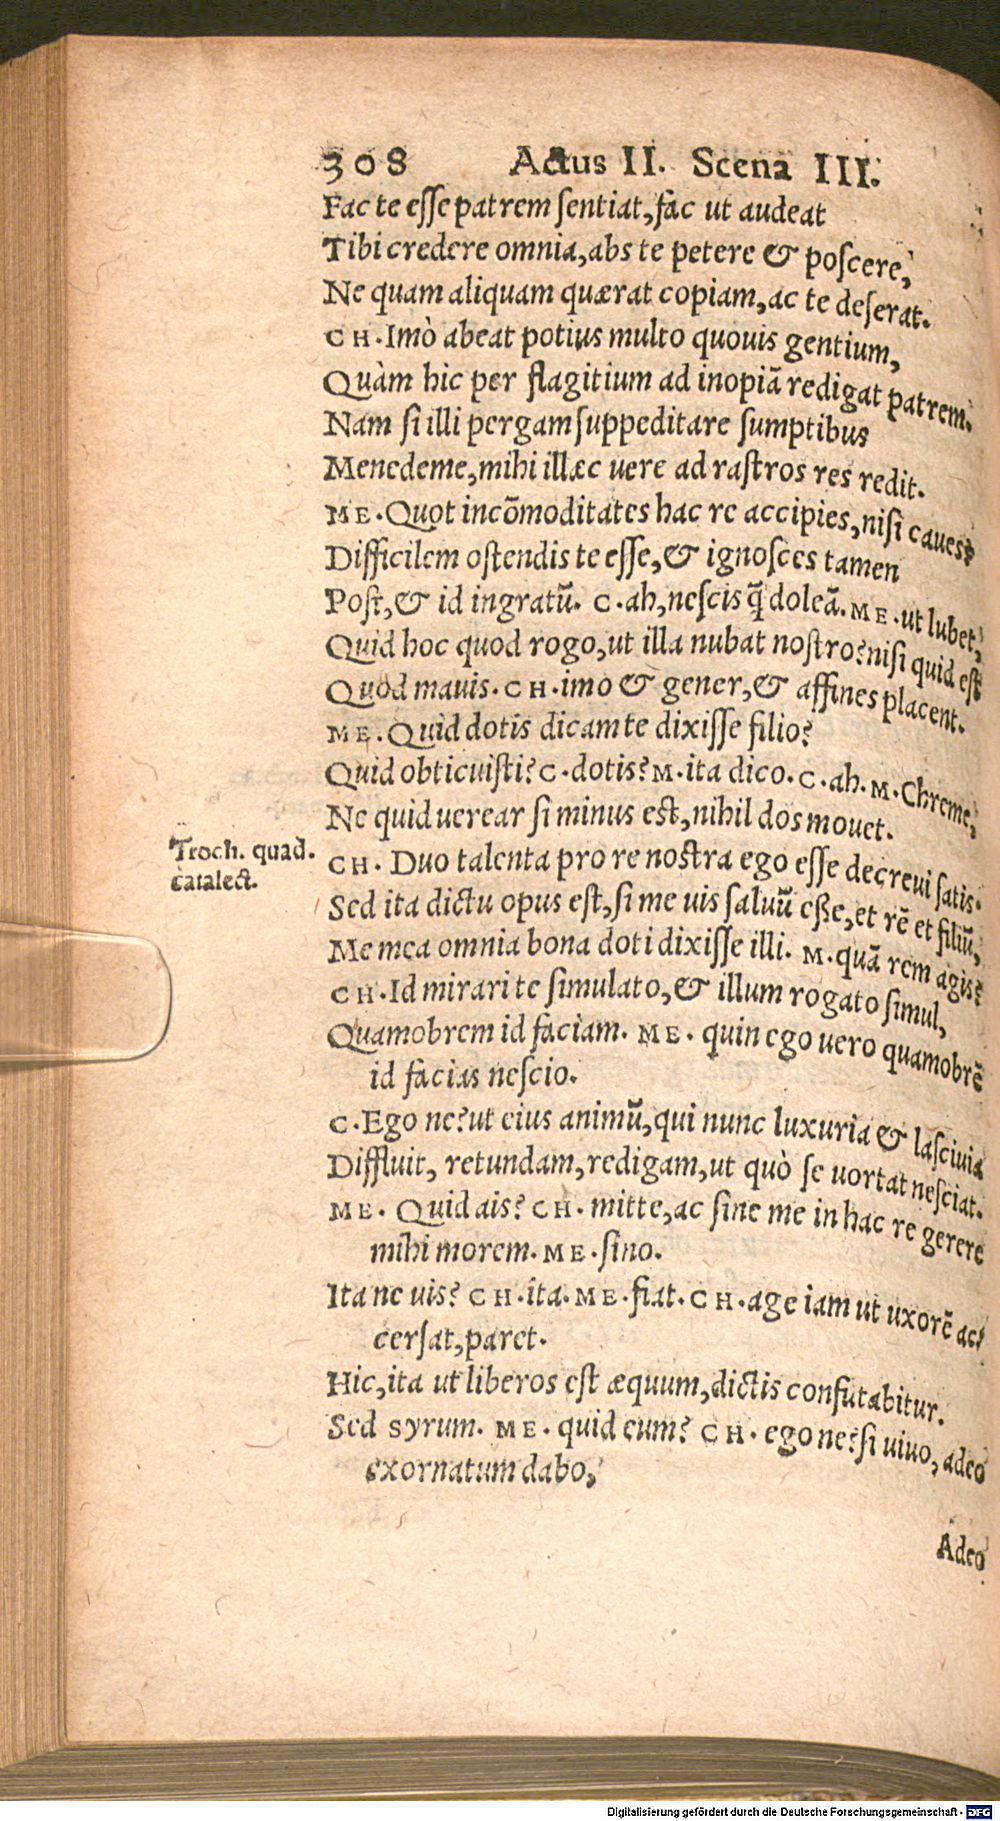 308 Actus II. Scena III.
Fac te esse patrem sentiat, fac ut audeat
Tibi credere omnia, abs te petere & poscere,
Ne quam aliquam quærat copiam, ac te deserat.
CH. Imò abeat potius multo quouis gentium,
Quàm hic per flagitium ad inopiã redigat patrem.
Nam si illi pergam suppeditare sumptibus
Menedeme, mihi illæc uere ad rastros res redit.
ME. Quot incõmoditates hac re accipies, nisi caues?
Difficilem ostendis te esse, & ignosces tamen
Post, & id ingratũ. C. ah, nescis q̃ doleã. ME. ut lubet,
Quid hoc quod rogo, ut illa nubat nostro? nisi quid est
Quod mauis. CH. imo & gener, & affines placent.
ME. Quid dotis dicam te dixisse filio?
Quid obticuisti? C. dotis? M. ita dico. C. ah. M. Chreme,
Ne quid uerear si minus est, nihil dos mouet.
Troch. quad.
catalect.
CH. Duo talenta pro re nostra ego esse decreui satis.
Sed ita dictu opus est, si me uis saluũ eße, et rẽ et filiũ,
Me mea omnia bona doti dixisse illi. M. quã rem agis?
CH. Id mirari te simulato, & illum rogato simul,
Quamobrem id faciam. ME. quin ego uero quamobrẽ
id facias nescio.
C. Ego ne? ut eius animũ, qui nunc luxuria & lasciuia
Diffluit, retundam, redigam, ut quò se uortat nesciat.
ME. Quid ais? CH. mitte, ac sine me in hac re gerere
mihi morem. ME. sino.
Ita ne uis? CH. ita. ME. fiat. CH. age iam ut uxorẽ ac/
cersat, paret.
Hic, ita ut liberos est æquum, dictis confutabitur.
Sed syrum. ME. quid eum? CH. ego ne? si uiuo, adeo
exornatum dabo,
Adeo
Digitalisierung gefördert durch die Deutsche Forschungsgemeinschaft - DFG